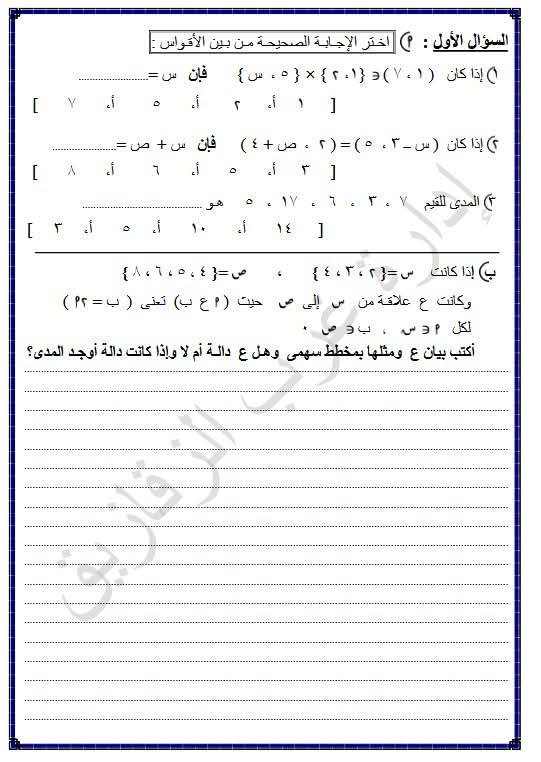 السؤال الأول : أ) اختر الإجابة الصحيحة من بين الأقواس :
١) إذا كان ( ١ ، ٧ ) ∋ { ١، ٢ } × { ٥ ، س } فإن س = ......................
[ ١ أ، ٢ أ، ٥ أ، ٧ ]
٢) إذا كان ( س – ٣ ، ٥ ) = ( ٢ ، ص + ٤ ) فإن س + ص = ......................
[ ٣ أ، ٥ أ، ٦ أ، ٨ ]
٣) المدى للقيم ٧ ، ٣ ، ٦ ، ١٧ ، ٥ هو ......................
[ ١٤ أ، ١٠ أ، ٥ أ، ٣ ]
ب) إذا كانت س = { ٢ ، ٣ ، ٤ } ، ص = { ٤ ، ٥ ، ٦ ، ٨ }
وكانت ع علاقة من س إلى ص حيث ( أ ع ب ) تعنى ( ب = ٢أ )
لكل أ ∋ س ، ب ∋ ص ٠
أكتب بيان ع ومثلها بمخطط سهمى وهل ع دالة أم لا وإذا كانت دالة أوجد المدى؟
إدارة غرب الزقازيق